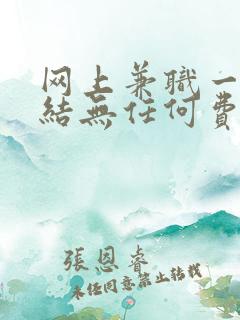 网上兼職一
結無任何費
張恩睿
未经同意禁止转载